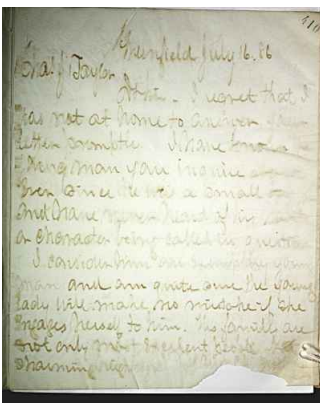 410
Greenfield July 16. 86
Chas. J. Taylor
I regret that I
was not at home to answer your
letter I have known
young man you inquire
ever since he was a small
and have never heard of his
or character being called in question
I consider him an young
man and am quite sure the young
lady will make no mistake if she
engages herself to him. The family are
not only most excellent people but
charming